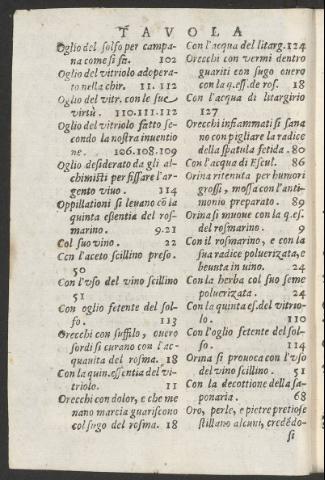 TAVOLA
Oglio del solfo per campa-
na come si fa. 102
Oglio del vitriolo adopera-
to nella chir. 11. 112
Oglio del vitr. con le sue
virtù. 110.111.112
Oglio del vitriolo fatto se-
condo la nostra inuentio
ne. 106.108.109
Oglio desiderato da gli al-
chimisti per fissare l'ar-
gento viuo. 114
Oppillationi si leuano cõ la
quinta essentia del ros-
marino. 9.21
Col suo vino. 22
Con l'aceto scillino preso.
50
Con l'vso del vino scillino
51
Con oglio fetente del sol-
fo. 113
Orecchi con suffilo, ouero
sordi si curano con l'ac-
quauita del rosma. 18
Con la quin.essentia del vi-
triolo. 11
Orecchi con dolor, e che me
nano marcia guariscono
col sugo del rosma. 18
Con l'acqua del litarg. 124
Orecchi con vermi dentro
guariti con sugo ouero
con la q.ess.de ros. 18
Con l'acqua di litargirio
127
Orecchi infiammati si sana
no con pigliare la radice
della spatula fetida. 80
Con l'acqua di Escul. 86
Orina ritenuta per humori
grossi, mossa con l'anti-
monio preparato. 89
Orina si muoue con la q.es.
del rosmarino. 9
Con il rosmarino, e con la
sua radice poluerizata, e
beunta in uino. 24
Con la herba col suo seme
poluerizata. 24
Con la quinta es.del vitrio-
lo. 110
Con l'oglio fetente del sol-
fo. 114
Orina si prouoca con l'vso
del vino scillino. 51
Con la decottione della sa-
ponaria. 68
Oro, perle, e pietre pretiose
stillano alcuni, credẽdo-
si